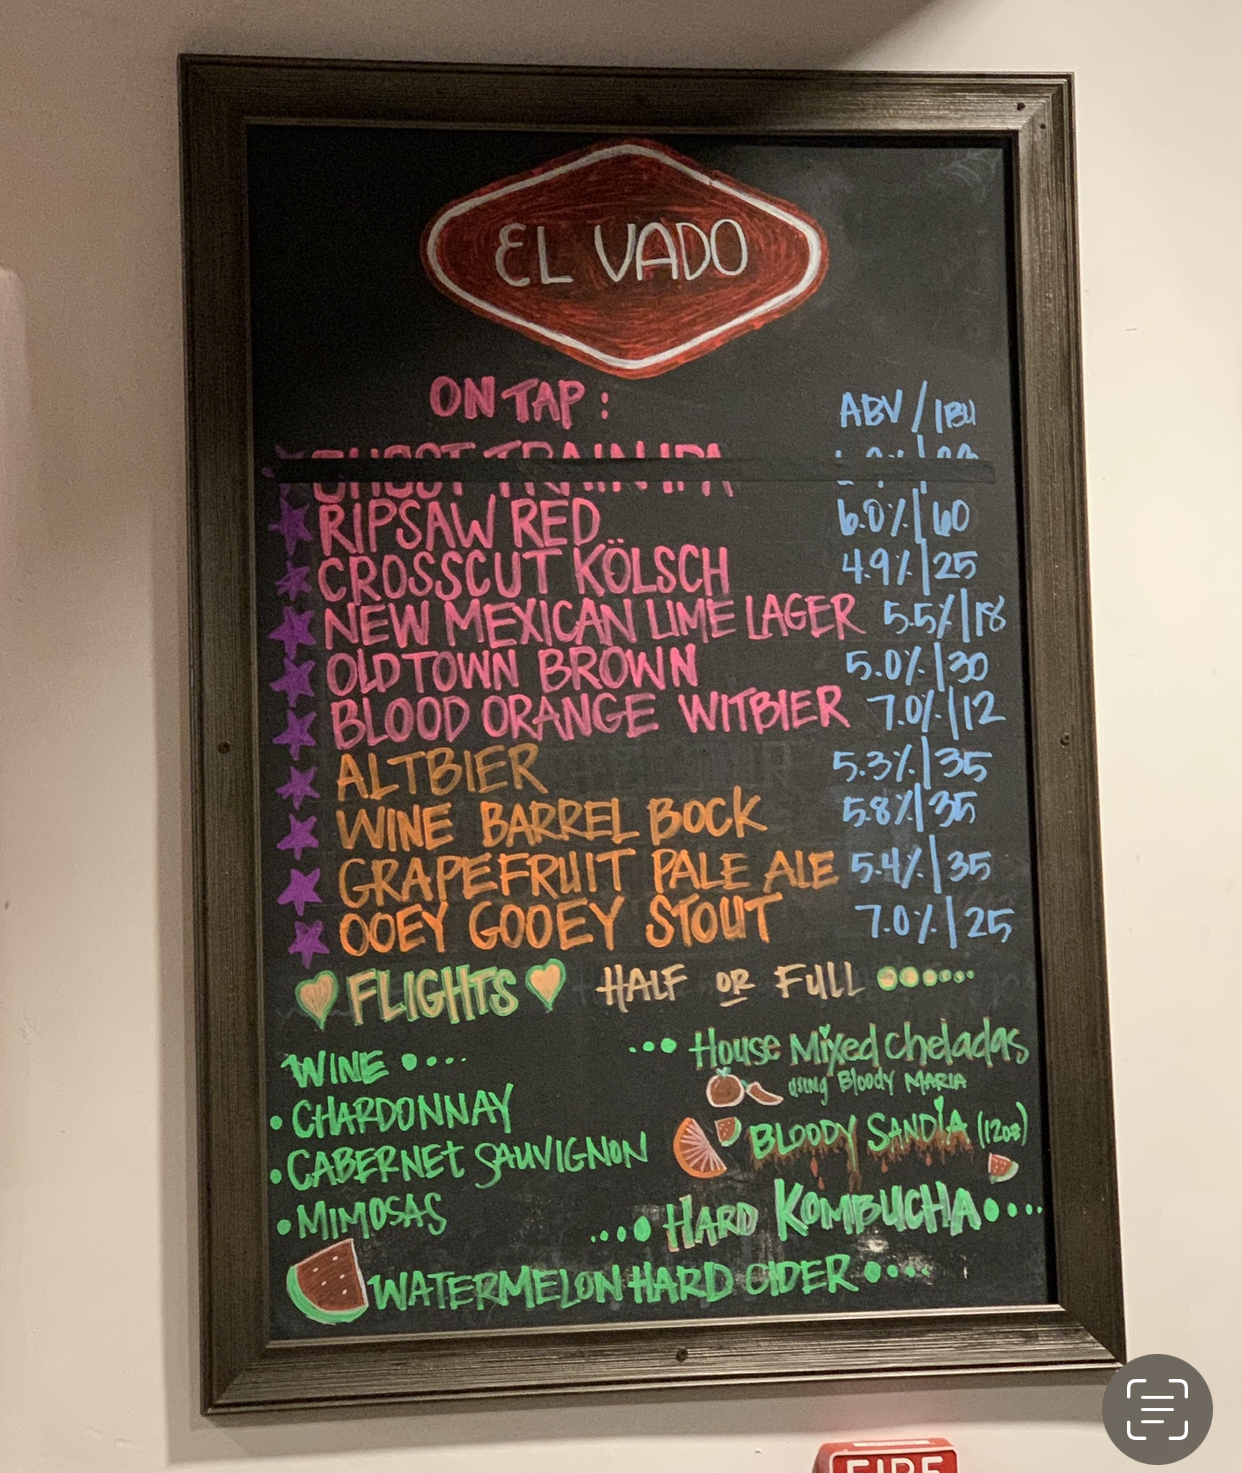 EL VADO
ON TAP: ABV / IBU
GHOST TRAIN IPA
RIPSAW RED 6.0% | 60
CROSSCUT KÖLSCH 4.9% | 25
NEW MEXICAN LIME LAGER 5.5% | 18
OLD TOWN BROWN 5.0% | 30
BLOOD ORANGE WITBIER 7.0% | 12
ALTBIER 5.3% | 35
WINE BARREL BOCK 5.8% | 35
GRAPEFRUIT PALE ALE 5.4% | 35
OOEY GOOEY STOUT 7.0% | 25
FLIGHTS HALF OR FULL
WINE
• CHARDONNAY
• CABERNET SAUVIGNON
• MIMOSAS
House Mixed Cheladas
using Bloody Maria
BLOODY SANDIA (12oz)
HARD KOMBUCHA
WATERMELON HARD CIDER
FIRE